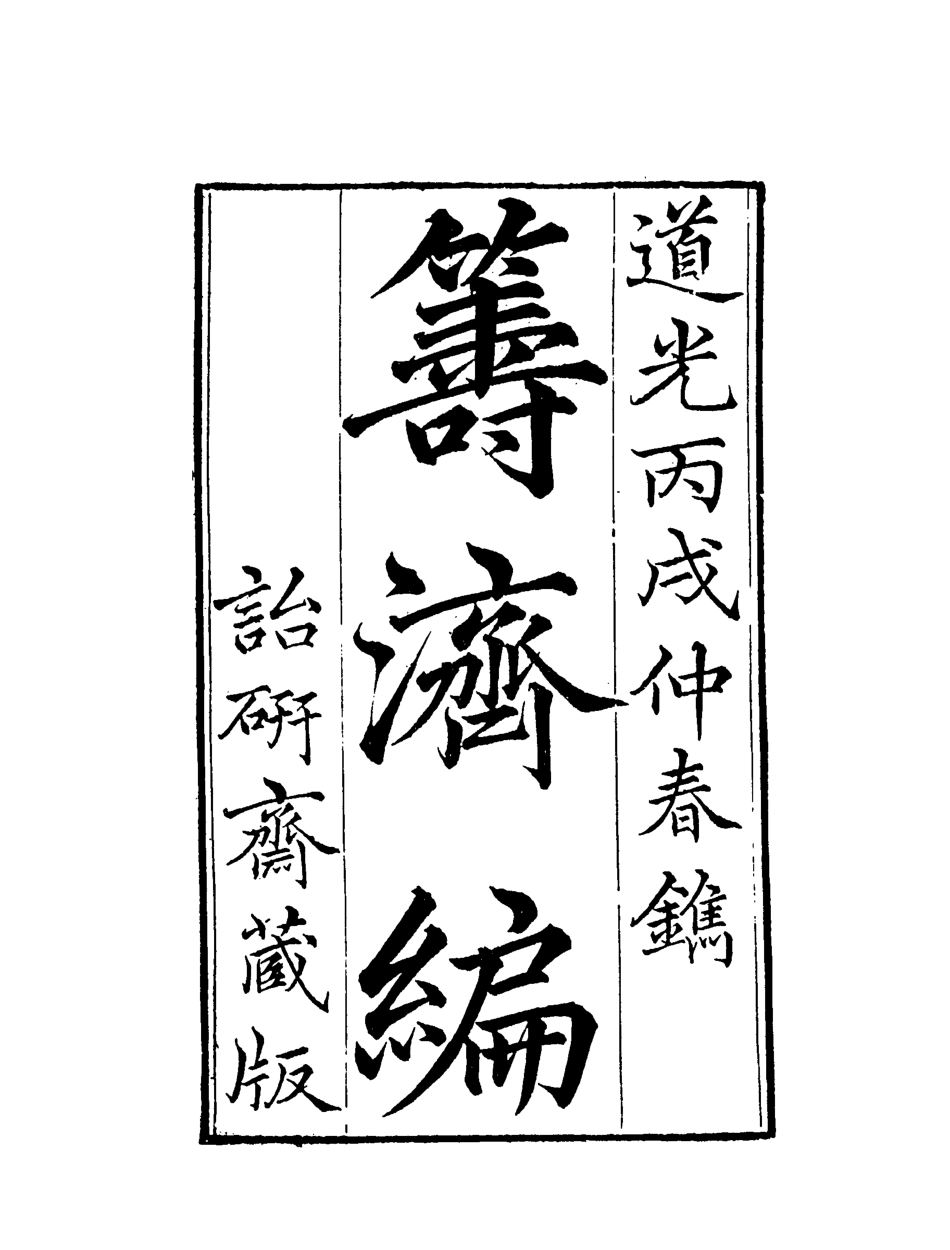 道光丙戌仲春鐫
籌濟編
詒硏齋藏版